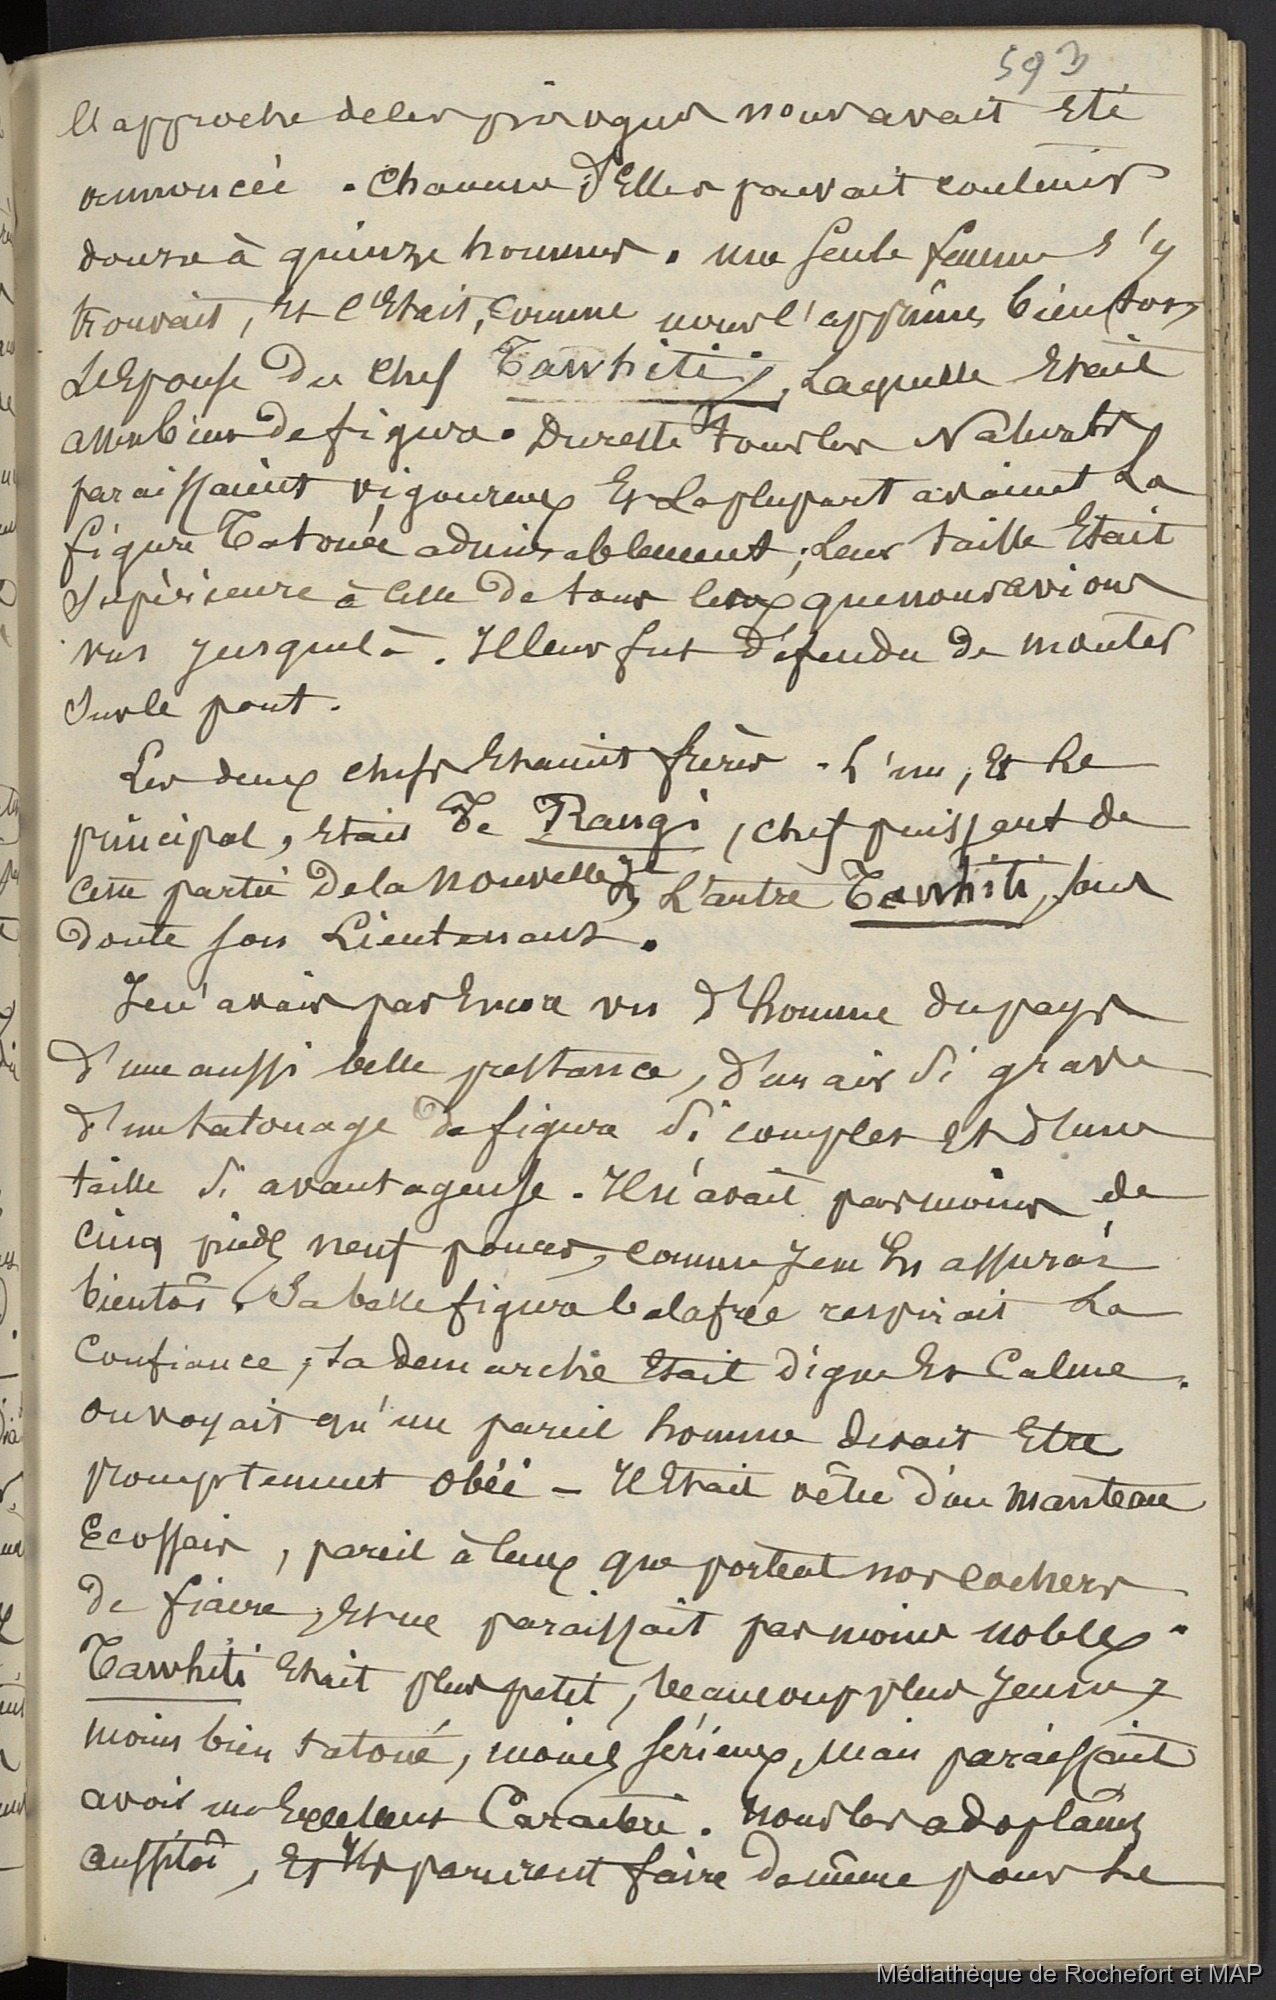 593
L'approche de les pirogues nous avait Eté
annoncée. Chacune d'Elles pouvait contenir
douze à quinze hommes. une seule femme s'y
trouvait, Et c'Etait, comme nous l'apprîmes bientot,
L'Epouse du Chef Tawhiti, Laquelle Etait
assez bien de figure. Dureste tous les Naturels
paraissaient vigoureux Et La plupart avaient La
figure Tatouée admirablement; Leur taille Etait
Supérieure à Celle de tous Ceux que nous avions
vus jusque là. Il leur fut défendu de monter
Sur le pont.
Les deux chefs Etaient frères. L'un, Et Le
principal, Etait Te Rangi, chef puissant de
Cette partie de la Nouvelle Zde L'autre Tawhiti, sans
doute son Lieutenant.
Je n'avais pas Encore vu d'homme du pays
d'une aussi belle prestance, d'un air Si grave
d'un tatouage de figure Si complet Et d'une
taille Si avantageuse. Il n'avait pas moins de
Cinq pieds neuf pouces, comme je m'En assurai
bientôt. Sa belle figure balafrée respirait La
Confiance, Sa demarche Etait digne Et Calme.
on voyait qu'un pareil homme devait Etre
promptement obéi - Il Etait vêtu d'un manteau
Ecossais, pareil à Ceux que portent nos cochers
de fiacre, Et ne paraissait pas moins noble.
Tawhiti Etait plus petit, beaucoup plus jeune,
moins bien tatoué, moins sérieux, Mais paraissait
avoir un Excellent Caractère. Nous les adoptâmes
Aussitôt, Et Ils parurent faire de même pour Le
Médiathèque de Rochefort et MAP